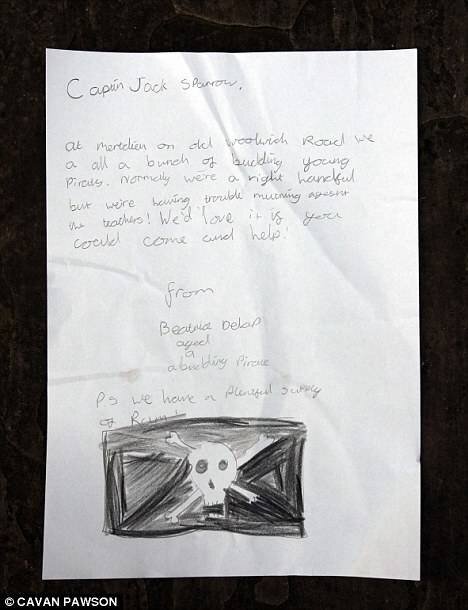 Captin Jack Sparrow,
At meridien on old woolwich Road we
a all a bunch of budding young
Pirats. Normaly we're a right handful
but we're having trouble mutining agenst
the teachers! We'd love it if you
could come and help!
from
Beatrice Delap
aged
9
a budding Pirate
PS we have a plentful supley
of Rum!
© CAVAN PAWSON